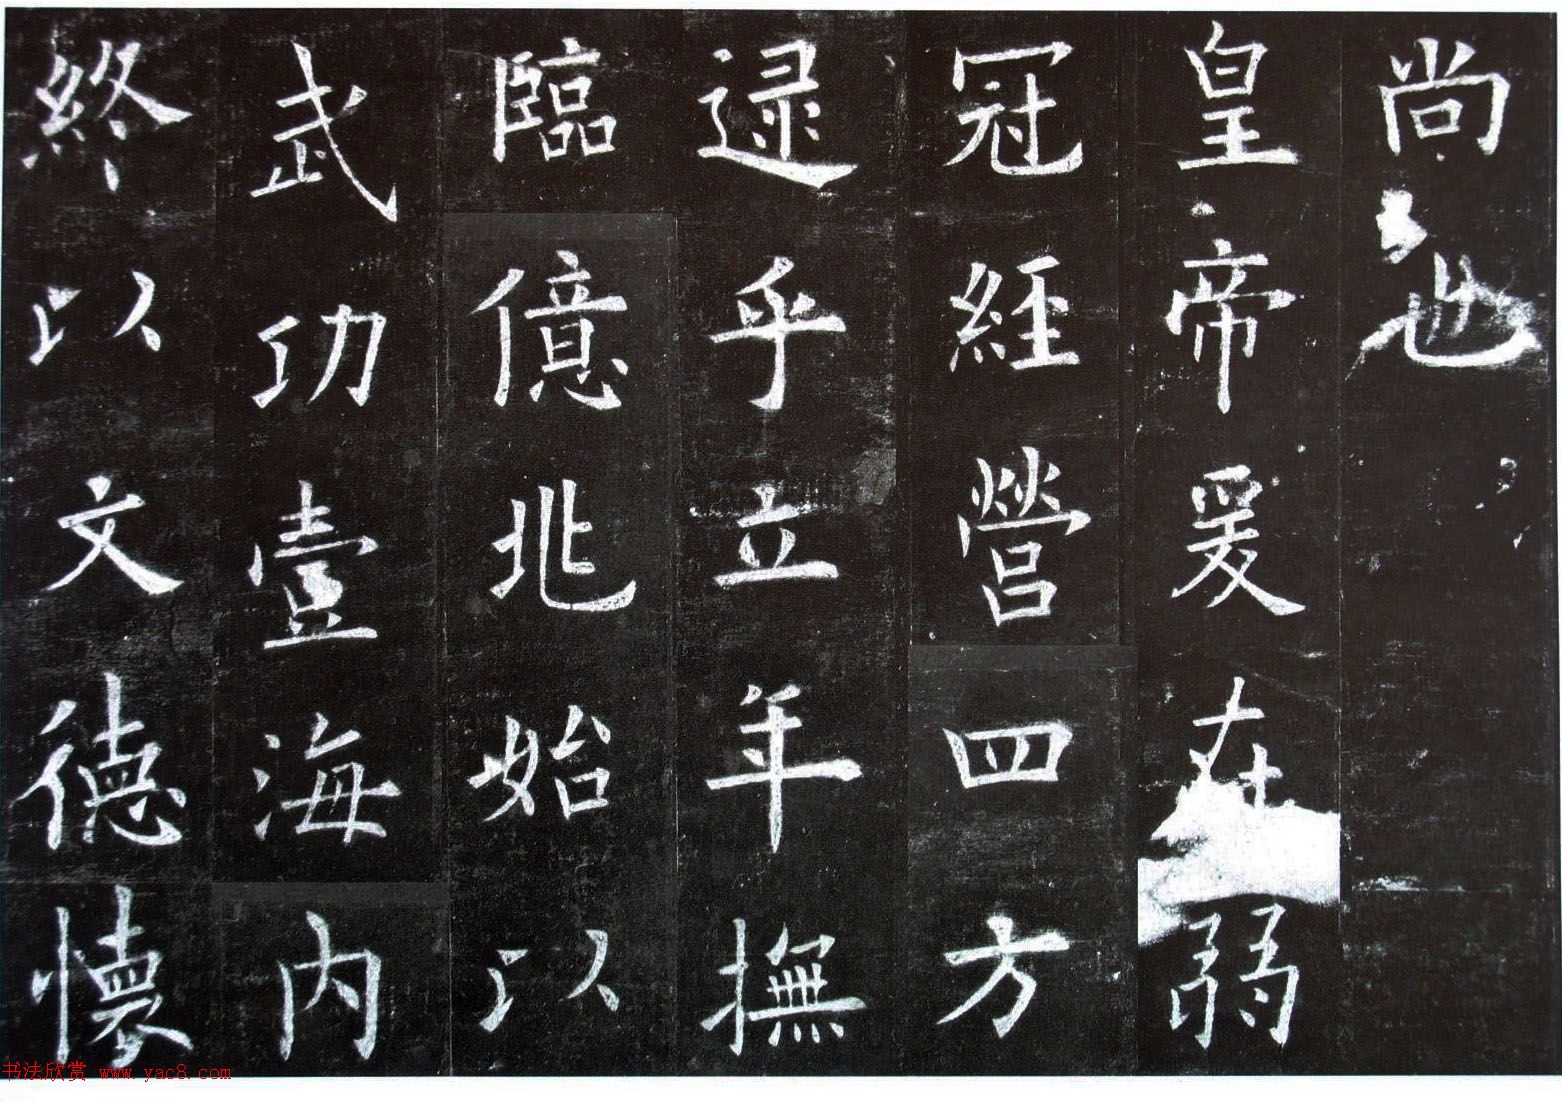 尚也
皇帝爰在弱
冠經營四方
逯乎立年撫
臨億兆始以
武功壹海內
終以文德懷
书法欣赏 www.yac8.com